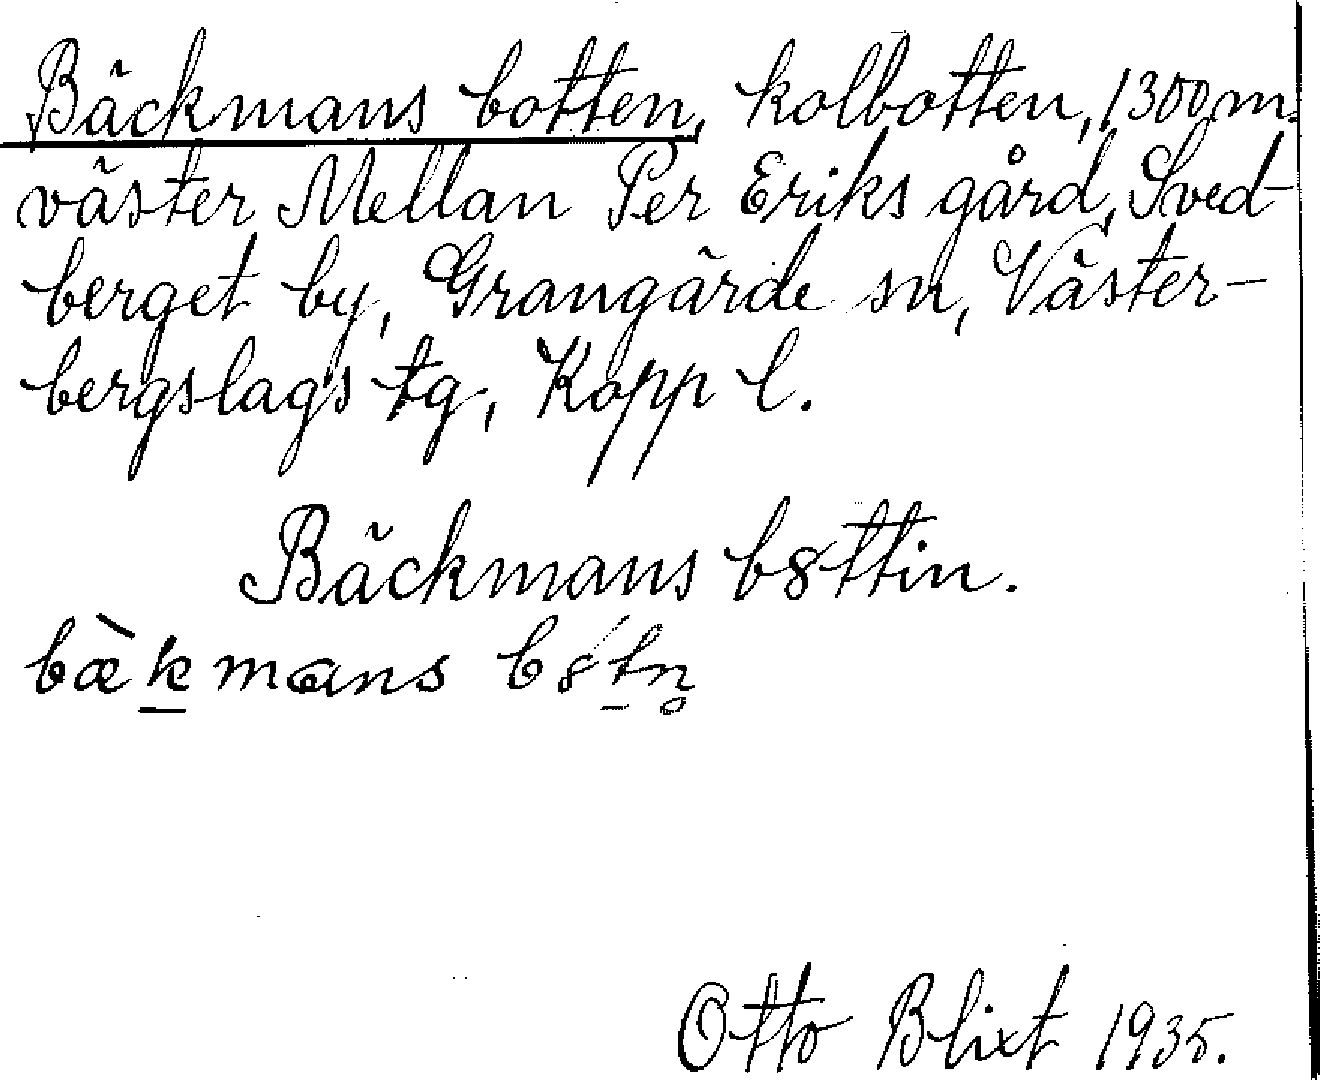 Bäckmans botten, kolbotten, 1300 m.
väster Mellan Per Eriks gård, Sved-
berget by, Grangärde sn, Väster-
bergslags tg, Kopp l.
Bäckmans b8ttin.
bæ̀k̲mans b8́t̲n̥
Otto Blixt 1935.